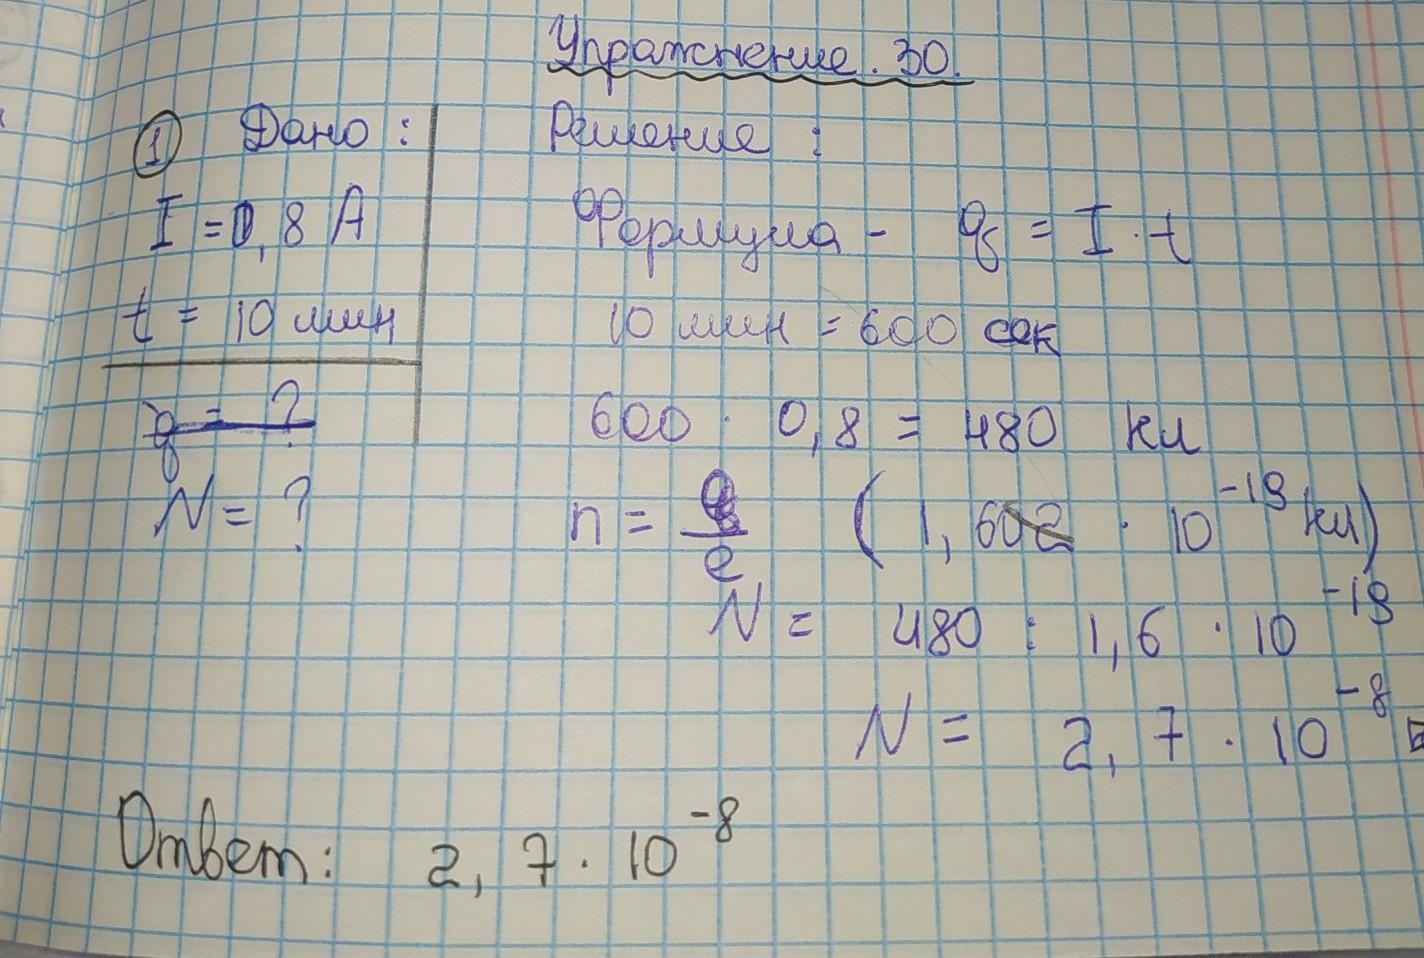 Упражнение. 30.
① Дано:
I = 0,8 А
t = 10 мин
q = ?
N = ?
Решение:
Формула - q = I · t
10 мин = 600 сек
600 · 0,8 = 480 кл
n = q/e (1,602 · 10⁻¹⁹ кл)
N = 480 : 1,6 · 10⁻¹⁹
N = 2,7 · 10⁻⁸
Ответ: 2,7 · 10⁻⁸